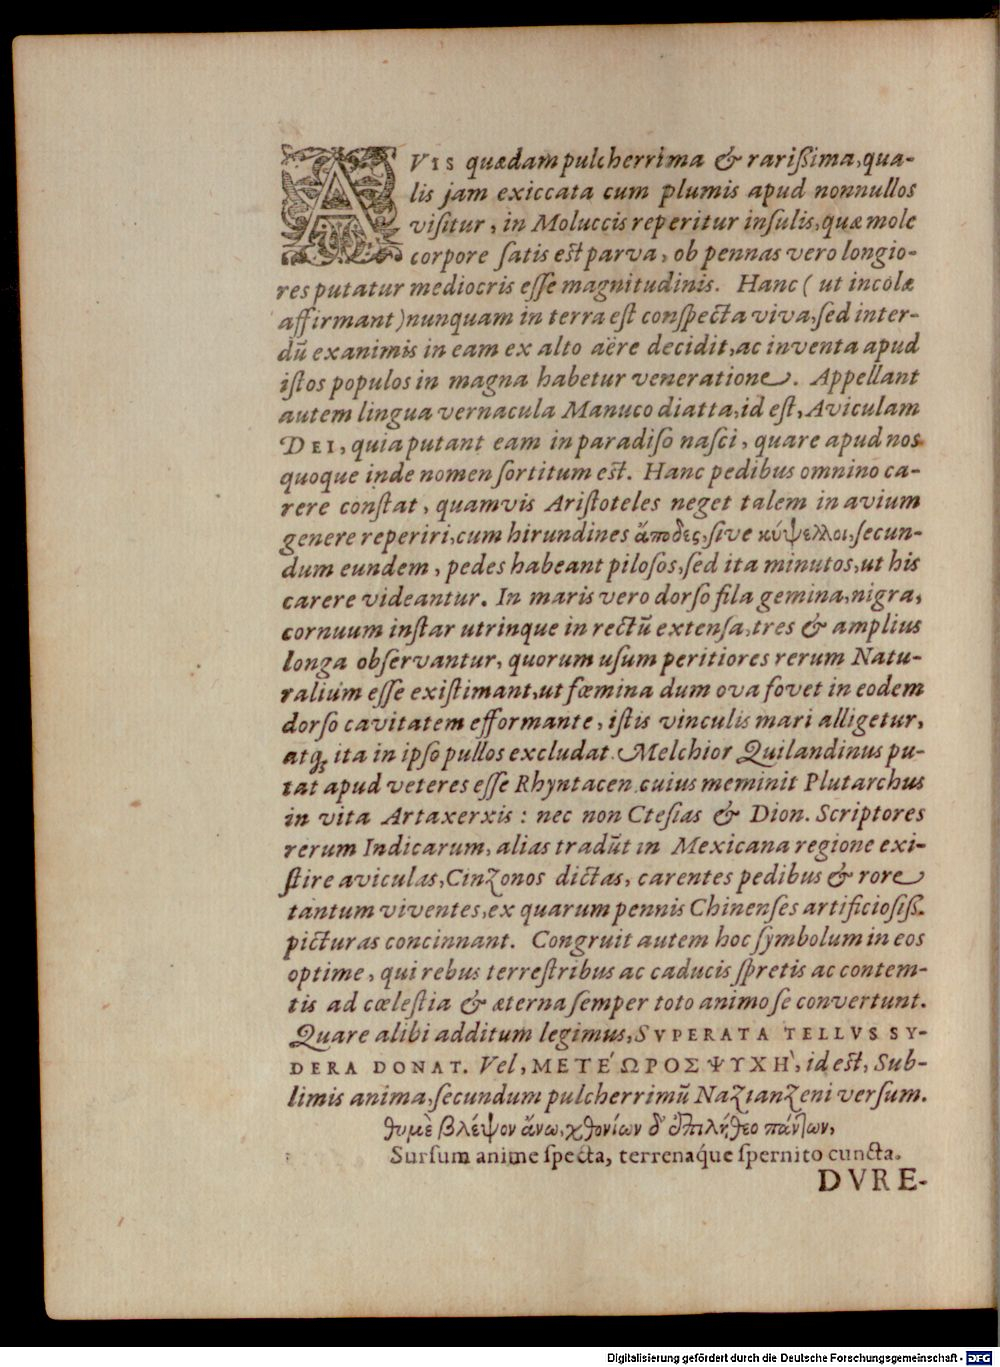 AVIS quædam pulcherrima & rarißima, qua-
lis jam exiccata cum plumis apud nonnullos
viſitur, in Moluccis reperitur inſulis, quæ mole
corpore ſatis est parva, ob pennas vero longio-
res putatur mediocris eſſe magnitudinis. Hanc ( ut incolæ
affirmant) nunquam in terra eſt conſpecta viva, ſed inter-
dũ exanimis in eam ex alto aëre decidit, ac inventa apud
iſtos populos in magna habetur veneratione. Appellant
autem lingua vernacula Manuco diatta, id eſt, Aviculam
DEI, quia putant eam in paradiſo naſci, quare apud nos
quoque inde nomen ſortitum est. Hanc pedibus omnino ca-
rere conſtat, quamvis Ariſtoteles neget talem in avium
genere reperiri, cum hirundines ἄποδες, ſive κύψελλοι, ſecun-
dum eundem, pedes habeant piloſos, ſed ita minutos, ut his
carere videantur. In maris vero dorſo fila gemina, nigra,
cornuum inſtar utrinque in rectũ extenſa, tres & amplius
longa obſervantur, quorum uſum peritiores rerum Natu-
ralium eſſe exiſtimant, ut fœmina dum ova fovet in eodem
dorſo cavitatem efformante, iſtis vinculis mari alligetur,
atq; ita in ipſo pullos excludat. Melchior Quilandinus pu-
tat apud veteres eſſe Rhyntacen cuius meminit Plutarchus
in vita Artaxerxis : nec non Cteſias & Dion. Scriptores
rerum Indicarum, alias tradũt in Mexicana regione exi-
ſtire aviculas, Cinzonos dictas, carentes pedibus & rore
tantum viventes, ex quarum pennis Chinenſes artificioſiß.
picturas concinnant. Congruit autem hoc ſymbolum in eos
optime, qui rebus terreſtribus ac caducis ſpretis ac contem-
tis ad cœleſtia & æterna ſemper toto animo ſe convertunt.
Quare alibi additum legimus, SVPERATA TELLVS SY-
DERA DONAT. Vel, ΜΕΤΕ΄ΩΡΟΣ ΨΥΧΗ`, id est, Sub-
limis anima, ſecundum pulcherrimũ Nazianzeni verſum.
θυμὲ βλέψον ἄνω, χθονίων δ' ἐπιλήθεο πάντων,
Surſum anime ſpecta, terrenaq́ue ſpernito cuncta.
DVRE-
Digitalisierung gefördert durch die Deutsche Forschungsgemeinschaft - DFG